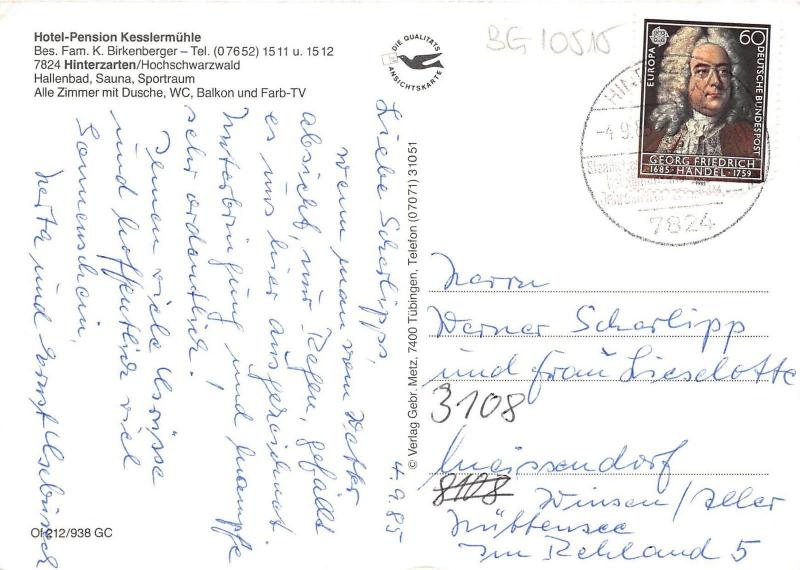 Hotel-Pension Kesslermühle
Bes. Fam. K. Birkenberger – Tel. (0 76 52) 15 11 u. 15 12
7824 Hinterzarten/Hochschwarzwald
Hallenbad, Sauna, Sportraum
Alle Zimmer mit Dusche, WC, Balkon und Farb-TV
DIE QUALITÄTS
ANSICHTSKARTE
BG 10515
EUROPA
60
DEUTSCHE BUNDESPOST
GEORG FRIEDRICH
1685 · HÄNDEL · 1759
-4.9.8
7824
4.9.85
Liebe Scharlipps,
wenn man vom Wetter
absieht, nur Regen, gefällt
es uns hier ausgezeichnet.
Unterbringung und
sehr ordentlich!
Ihnen viele Grüsse
und hoffentlich viel
Sonnenschein,
Herta und
© Verlag Gebr. Metz, 7400 Tübingen, Telefon (07071) 31051
Herrn
Werner Scharlipp
und Frau Lieselotte
3108
Meissendorf
8108
Winsen/Aller
Hüttensee
Im Rehland 5
Of 212/938 GC